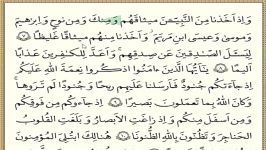 وَإِذْ أَخَذْنَا مِنَ النَّبِيِّينَ مِيثَاقَهُمْ وَمِنكَ وَمِن نُّوحٍ وَإِبْرَاهِيمَ
وَمُوسَىٰ وَعِيسَى ابْنِ مَرْيَمَ وَأَخَذْنَا مِنْهُم مِّيثَاقًا غَلِيظًا ٧
لِّيَسْأَلَ الصَّادِقِينَ عَن صِدْقِهِمْ وَأَعَدَّ لِلْكَافِرِينَ عَذَابًا
أَلِيمًا ٨ يَا أَيُّهَا الَّذِينَ آمَنُوا اذْكُرُوا نِعْمَةَ اللَّهِ عَلَيْكُمْ
إِذْ جَاءَتْكُمْ جُنُودٌ فَأَرْسَلْنَا عَلَيْهِمْ رِيحًا وَجُنُودًا لَّمْ تَرَوْهَا
وَكَانَ اللَّهُ بِمَا تَعْمَلُونَ بَصِيرًا ٩ إِذْ جَاءُوكُم مِّن فَوْقِكُمْ
وَمِنْ أَسْفَلَ مِنكُمْ وَإِذْ زَاغَتِ الْأَبْصَارُ وَبَلَغَتِ الْقُلُوبُ
الْحَنَاجِرَ وَتَظُنُّونَ بِاللَّهِ الظُّنُونَا ١٠ هُنَالِكَ ابْتُلِيَ الْمُؤْمِنُونَ